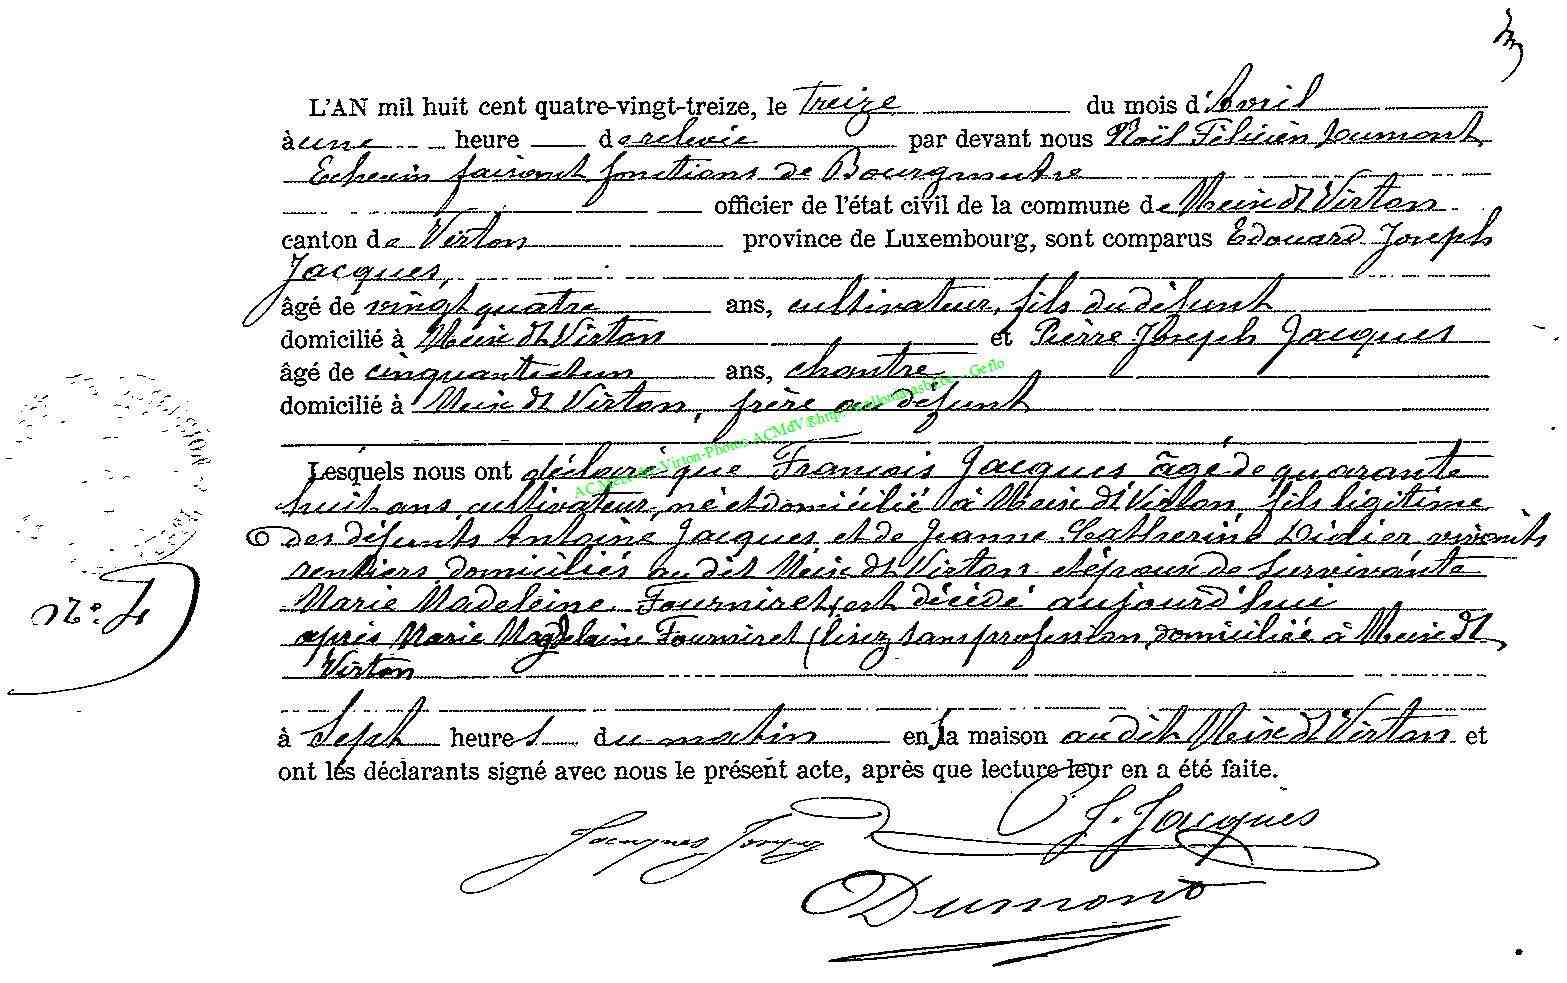 L'AN mil huit cent quatre-vingt-treize, le treize du mois d'Avril
à une heure de relevée par devant nous Noël Félicien Dumont
Echevin faisant fonctions de Bourgmestre
officier de l'état civil de la commune de Meix dt Virton
canton de Virton province de Luxembourg, sont comparus Edouard Joseph
Jacques,
âgé de vingt quatre ans, cultivateur, fils du défunt
domicilié à Meix dt Virton et Pierre Joseph Jacques
âgé de cinquante et un ans, chantre
domicilié à Meix dt Virton, frère au défunt
Lesquels nous ont déclaré que François Jacques âgé de quarante
huit ans, cultivateur, né et domicilié à Meix dt Virton, fils légitime
des défunts Antoine Jacques et de Jeanne Catherine Didier vivants
rentiers domiciliés au dit Meix dt Virton et époux de survivante
N° 4
Marie Madeleine Fourniret, est décédé aujourd'hui
après Marie Magdelaine Fourniret (lisez sans profession, domiciliée à Meix dt
Virton
à Sept heures du matin en sa maison au dit Meix dt Virton et
ont les déclarants signé avec nous le présent acte, après que lecture leur en a été faite.
Jacques Joseph
J. Jacques
Dumont